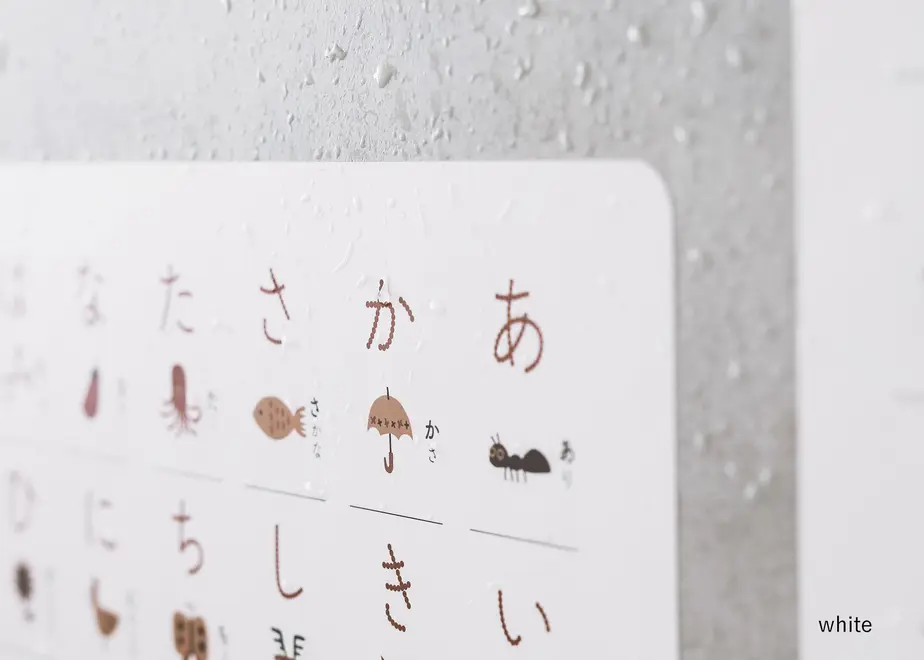 あ
あり
い
か
かさ
き
さ
さかな
し
た
ち
な
に
ひ
white